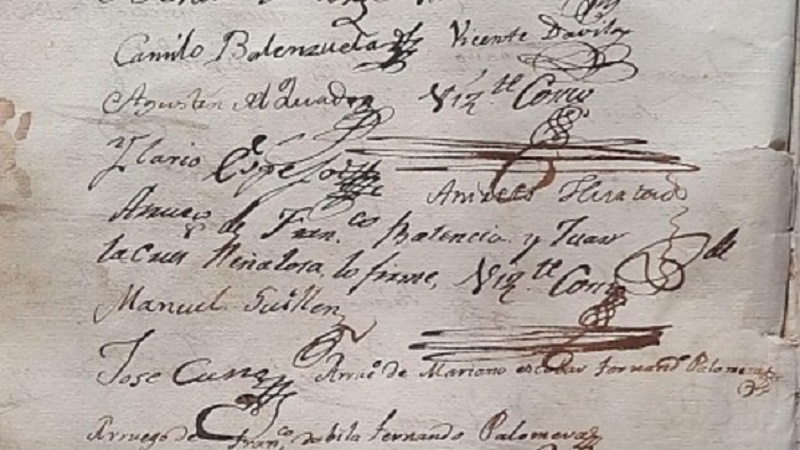 Camilo Balenzuela Vicente Davila
Agustin Alquadra Viz.te Como
Ylario Espejo
Aniceto Hurtado
Arruego de Fran.co Balencia y Juan de
lacrus Peñalosa lo firme, Viz.te Como
Manuel Guillen
Jose Cano Arruo de Mariano escobar fernando Palomera
Arruego de Fran.co dabila fernando Palomera